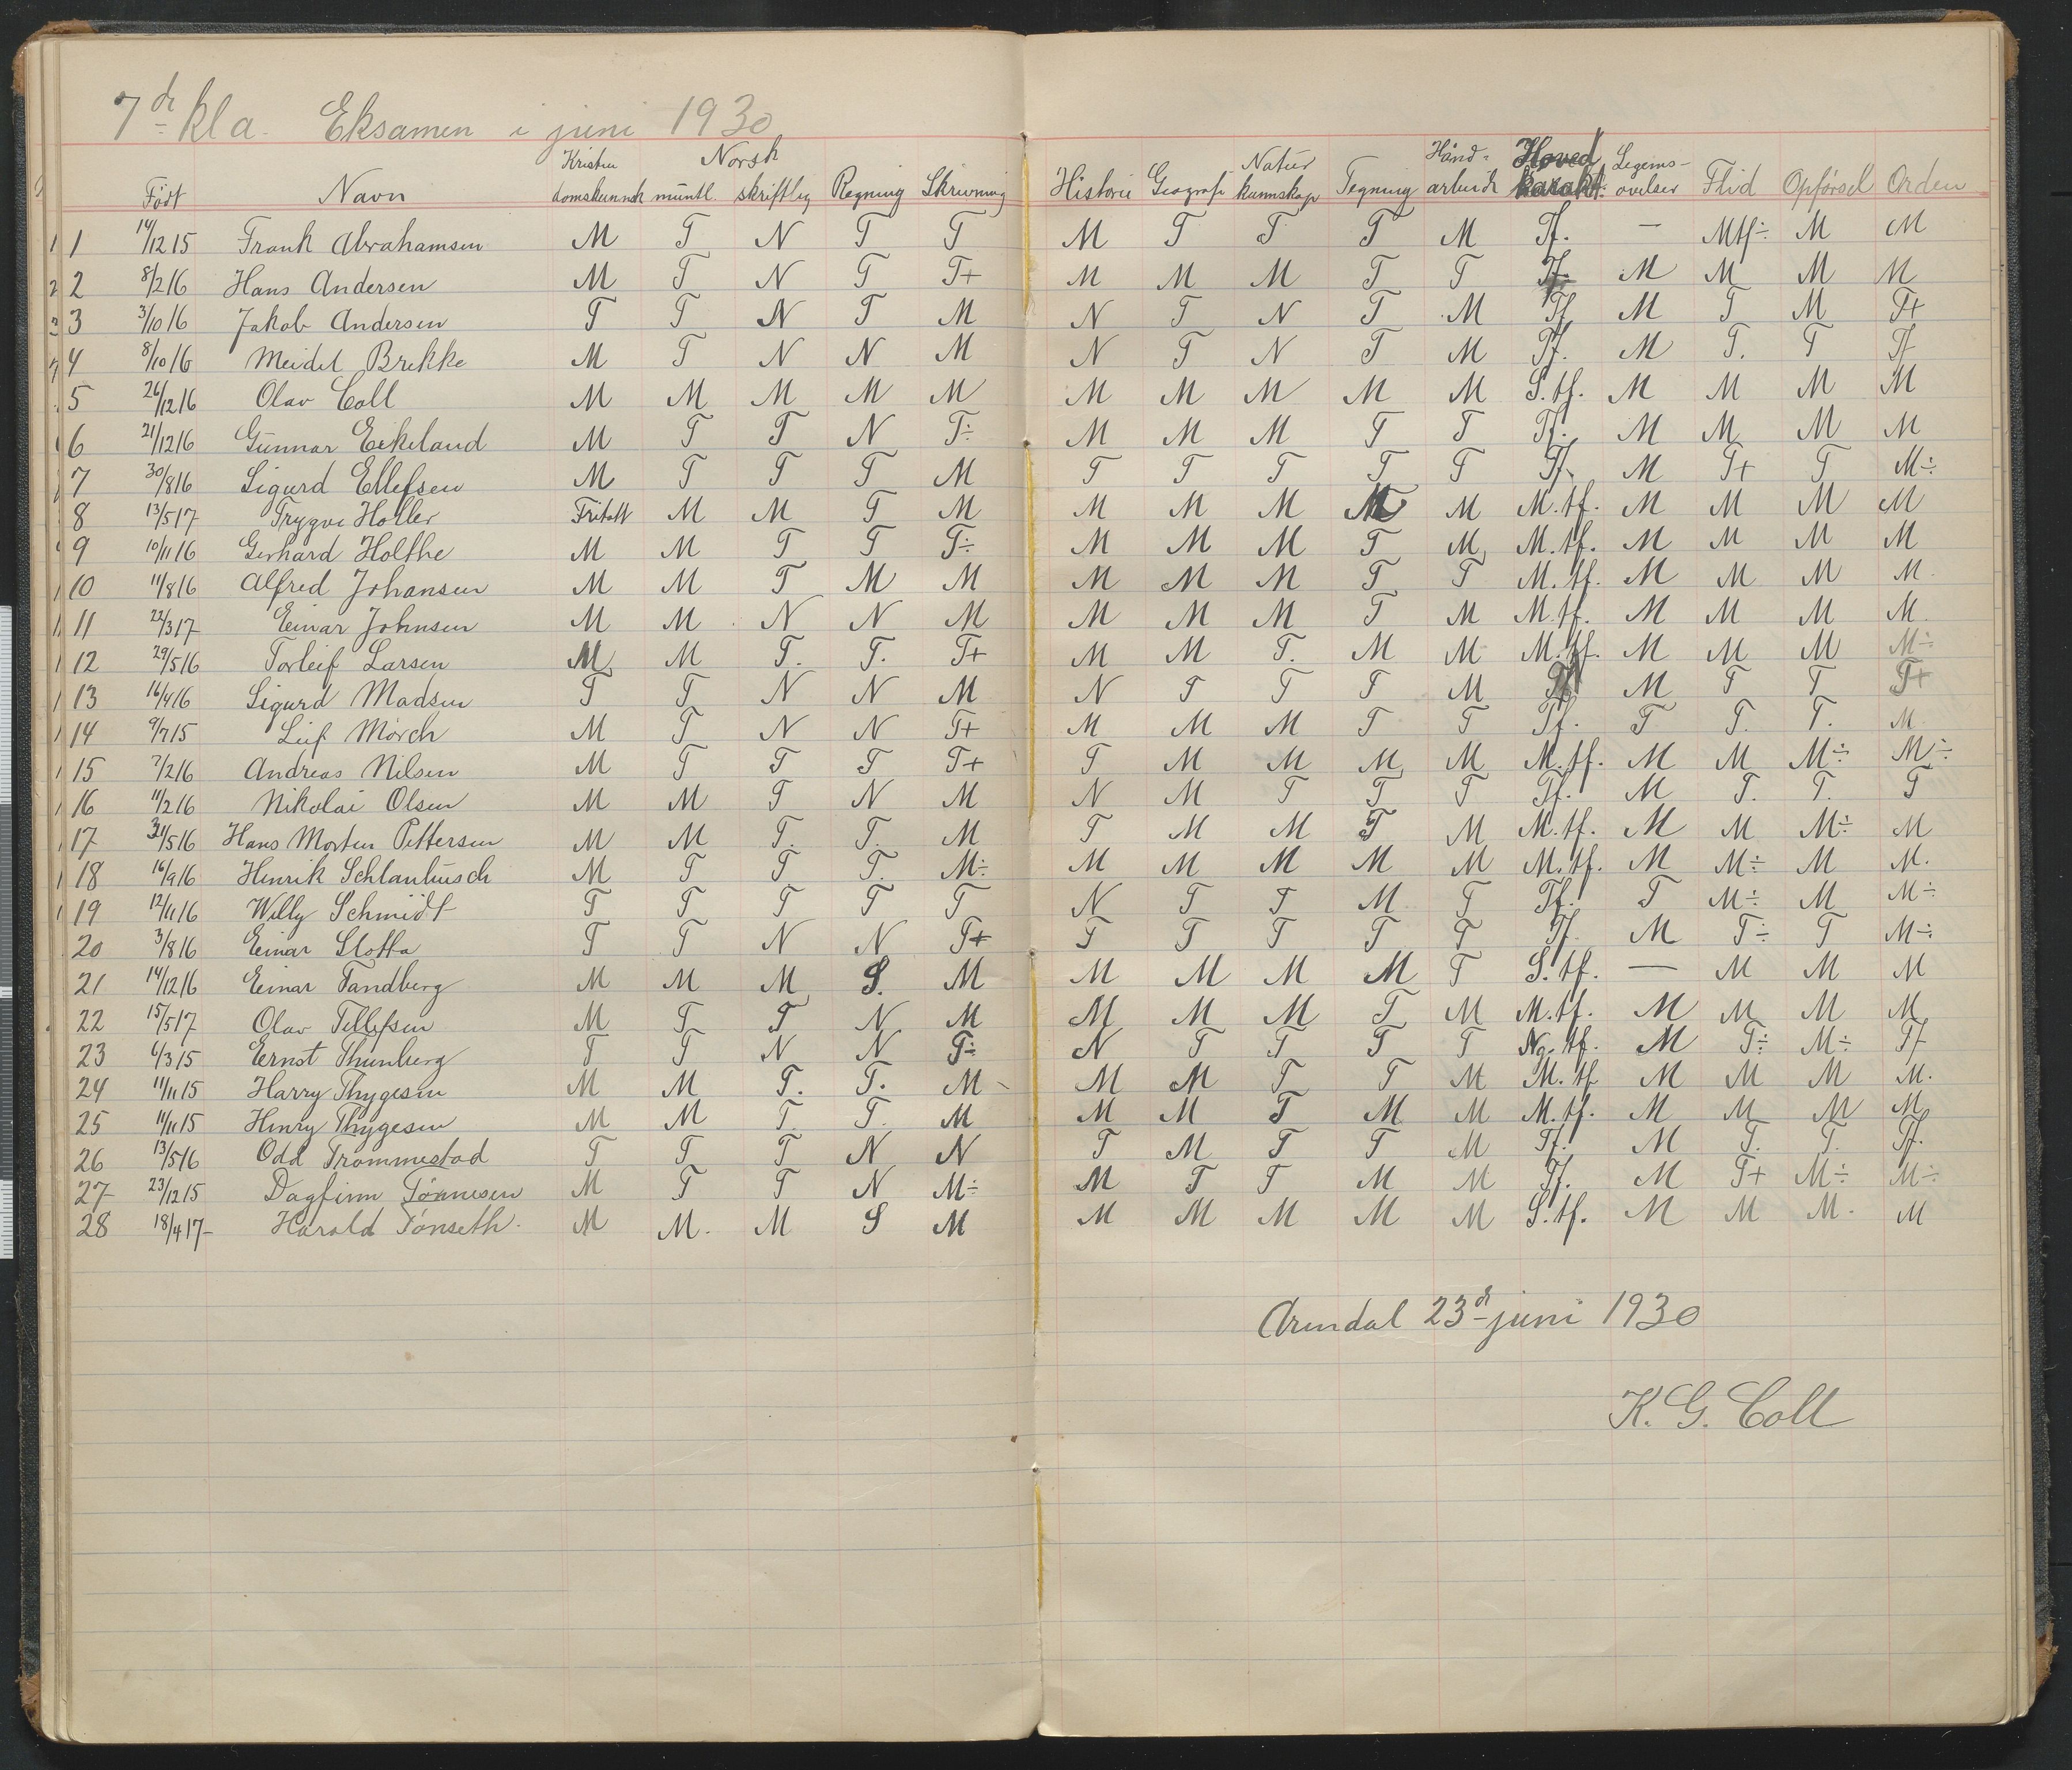 7de kla. Eksamen i juni 1930
Født Navn Kristen domskunnsk Norsk muntl. skriftlig Regning Skrivning Historie Geografi Natur kunnskap Tegning Hånd- arbeide Hoved karakt. Legems- øvelser Flid Opførsel Orden
1 14/12 15 Frank Abrahamsen M T N T T M T T T M Tf. — Mtf÷ M M
2 8/2 16 Hans Andersen M T N T T+ M M M T T Tf. M M M M
3 3/10 16 Jakob Andersen T T N T M N T N T M Tf M T M T+
4 8/10 16 Meidel Brekke M T N N M N T N T M Tf. M T. T Tf
5 26/12 16 Olav Coll M M M M M M M M M M S.tf. M M M M
6 21/12 16 Gunnar Eikeland M T T N T÷ M M M T T Tf. M M M M
7 30/8 16 Sigurd Ellefsen M T T T M T T T T T Tf. M T+ T M÷
8 13/5 17 Trygve Holler Fritatt M M T M M M M M M.tf. M M M M
9 10/11 16 Gerhard Holthe M M T T T÷ M M M T M M.tf. M M M M
10 11/8 16 Alfred Johansen M M T M M M M M T T M.tf. M M M M.
11 22/3 17 Einar Johnsen M M N N M M M M T M M.tf. M M M M.
12 29/5 16 Torleif Larsen M M T. T. T+ M M T. M M M.tf. M M M M÷
13 16/4 16 Sigurd Madsen T T N N M N T T T M M T T T+
14 9/7 15 Leif Mørch M T N N T+ M M M T T Tf. T T. T. M
15 7/2 16 Andreas Nilsen M T T T T+ T M M M M M.tf. M M M÷ M÷
16 11/2 16 Nikolai Olsen M M T N M N M T T T Tf. M T. T. T
17 31/5 16 Hans Morten Pettersen M M T. T. M T M M T M M.tf. M M M÷ M
18 16/9 16 Henrik Schlanbusch M T T T. M÷ M M M M M M.tf. M M÷ M M.
19 12/11 16 Willy Schmidt T T T T T N T T M T Tf. T M÷ M M÷
20 3/8 16 Einar Slotta T T N N T+ T T T T T Tf. M T÷ T M÷
21 14/12 16 Einar Tandberg M M M S. M M M M M T S.tf. — M M M
22 15/5 17 Olav Tellefsen M T T N M M M M T M M.tf. M M M M
23 6/3 15 Ernst Thunberg T T N N T÷ N T T T T Ng.tf. M T÷ M÷ Tf
24 11/11 15 Harry Thygesen M M T. T. M M M T T M M.tf M M M M.
25 11/11 15 Henry Thygesen M M T T. M M M T M M M.tf. M M M M
26 13/5 16 Odd Trommestad T T T N N T M T T M Tf. M T. T. Tf.
27 23/12 15 Dagfinn Tønnesen M T T N M÷ M T T M M Tf. M T+ M÷ M÷
28 18/4 17 Harald Tønseth. M M. M S M M M M M M S.tf. M M M. M
Arendal 23de juni 1930
K. G. Coll